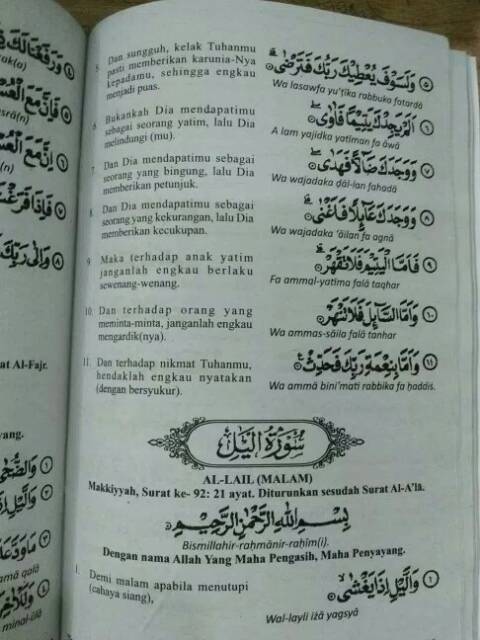 رَبَّكَ
at Al-Fajr.
yang.
amā qalā
minal-ūlā
5. Dan sungguh, kelak Tuhanmu
pasti memberikan karunia-Nya
kepadamu, sehingga engkau
menjadi puas.
٥ وَلَسَوْفَ يُعْطِيْكَ رَبُّكَ فَتَرْضٰىۗ
Wa lasawfa yu'ṭīka rabbuka fatarḍā
6. Bukankah Dia mendapatimu
sebagai seorang yatim, lalu Dia
melindungi (mu).
٦ اَلَمْ يَجِدْكَ يَتِيْمًا فَاٰوٰىۖ
A lam yajidka yatīman fa āwā
7. Dan Dia mendapatimu sebagai
seorang yang bingung, lalu Dia
memberikan petunjuk.
٧ وَوَجَدَكَ ضَاۤلًّا فَهَدٰىۖ
Wa wajadaka ḍāl-lan fahadā
8. Dan Dia mendapatimu sebagai
seorang yang kekurangan, lalu Dia
memberikan kecukupan.
٨ وَوَجَدَكَ عَاۤىِٕلًا فَاَغْنٰىۗ
Wa wajadaka 'āilan fa agnā
9. Maka terhadap anak yatim
janganlah engkau berlaku
sewenang-wenang.
٩ فَاَمَّا الْيَتِيْمَ فَلَا تَقْهَرْۗ
Fa ammal-yatīma falā taqhar
10. Dan terhadap orang yang
meminta-minta, janganlah engkau
mengardik(nya).
١٠ وَاَمَّا السَّاۤىِٕلَ فَلَا تَنْهَرْۗ
Wa ammas-sāila falā tanhar
11. Dan terhadap nikmat Tuhanmu,
hendaklah engkau nyatakan
(dengan bersyukur).
١١ وَاَمَّا بِنِعْمَةِ رَبِّكَ فَحَدِّثْ
Wa ammā bini'mati rabbika fa ḥaddiṡ.
سُوْرَةُ الَّيْلِ
AL-LAIL (MALAM)
Makkiyyah, Surat ke- 92: 21 ayat. Diturunkan sesudah Surat Al-A'lā.
بِسْمِ اللّٰهِ الرَّحْمٰنِ الرَّحِيْمِ
Bismillahir-raḥmānir-raḥīm(i).
Dengan nama Allah Yang Maha Pengasih, Maha Penyayang.
1. Demi malam apabila menutupi
(cahaya siang),
١ وَالَّيْلِ اِذَا يَغْشٰىۙ
Wal-layli iżā yagsyā